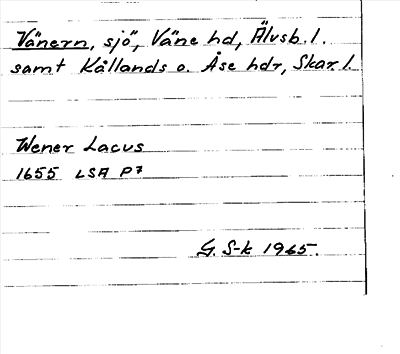 Vänern, sjö, Väne hd, Älvsb. l.
samt Kållands o. Åse hdr, Skar. l.
Wener Lacus
1655 LSA P7
G. S-k 1965.